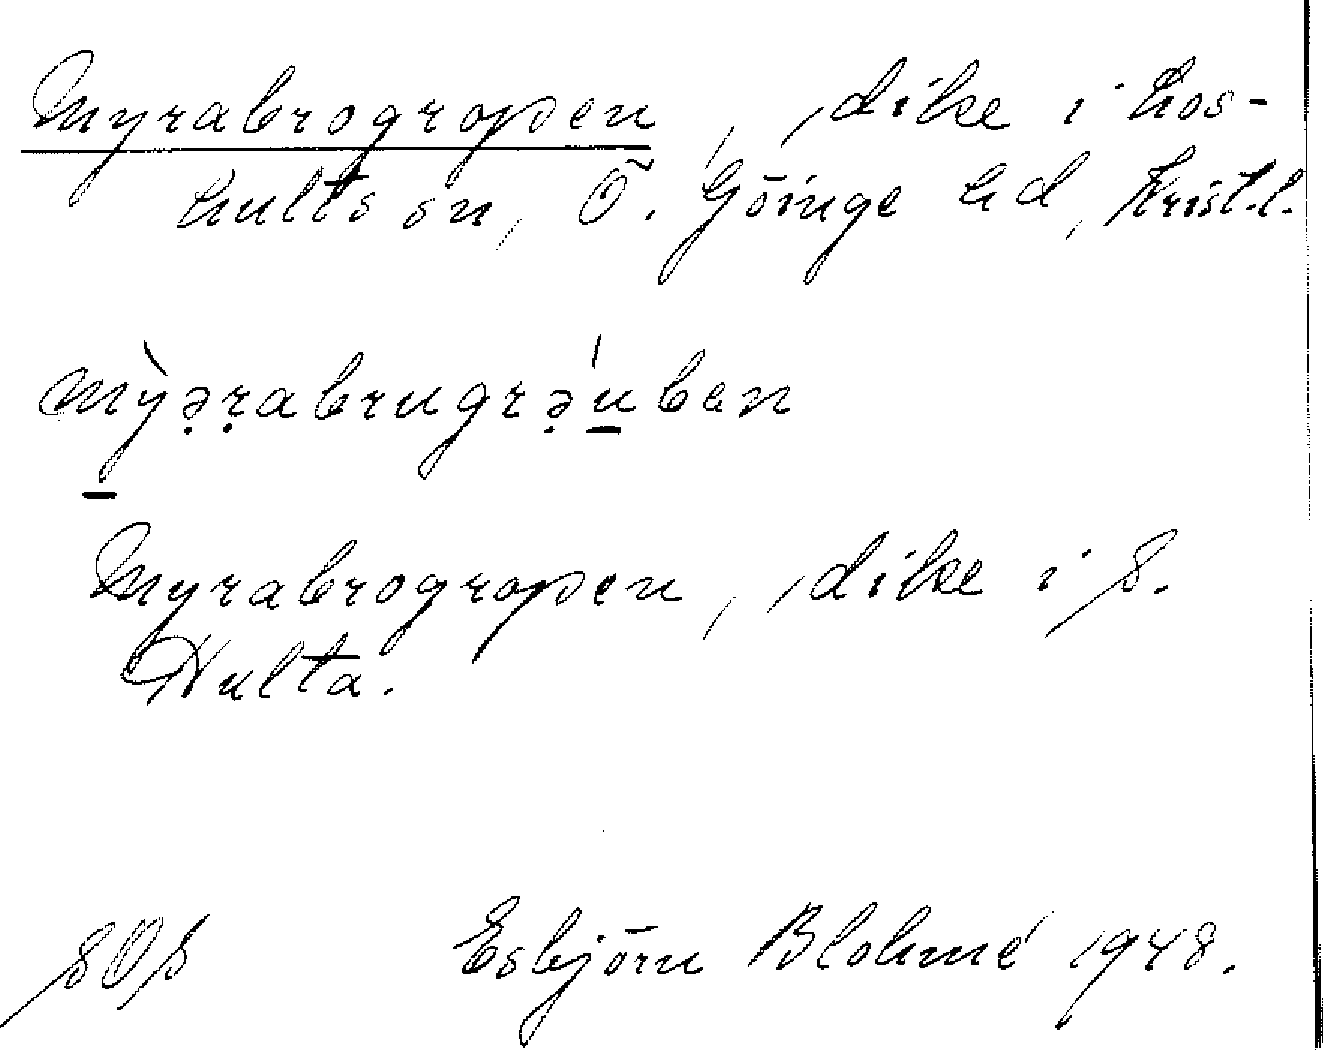 Myrabrogropen, dike i Los-
hults sn, Ö. Göinge hd, Krist.l.
mỳə̣ṛabrugrə̣úban
Myrabrogropen, dike i S.
Hulta.
SOS Esbjörn Blohmé 1948.